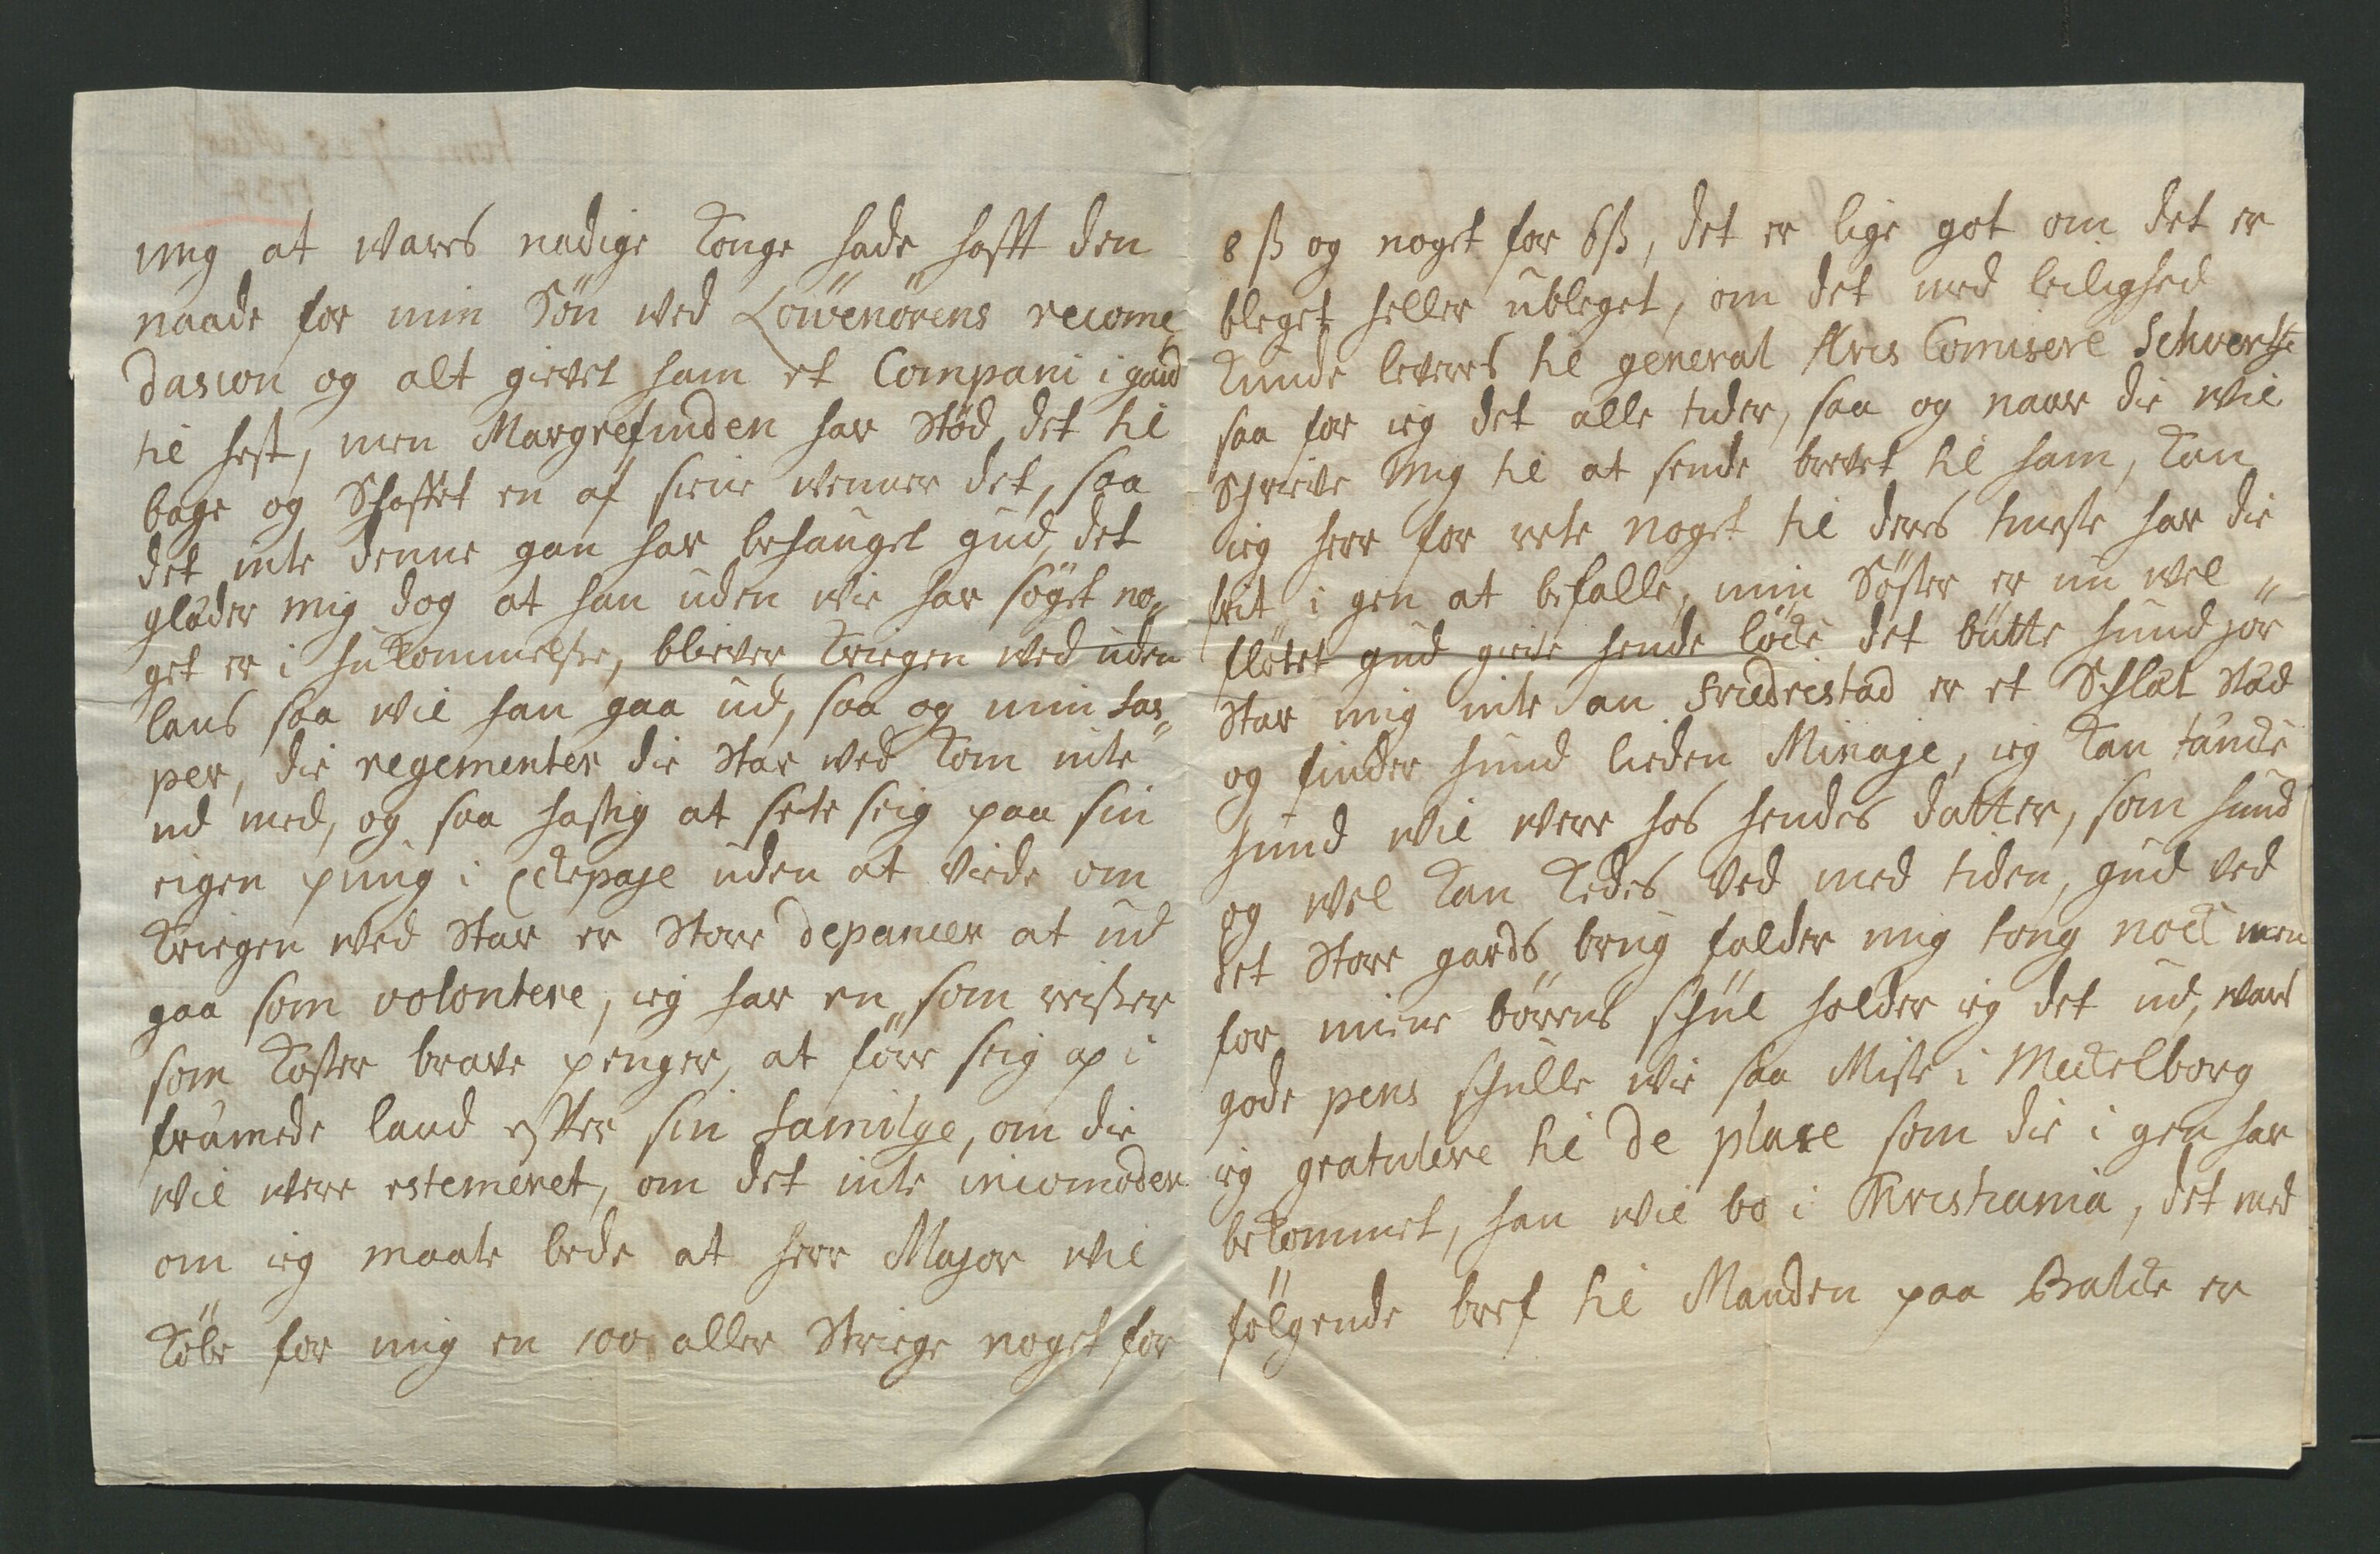 mig at wares nadige Konge hade hafft den
naade for min Sön wed Löwenörens recome¬
dasion og alt gievet ham et Compani i gard
til hest, men Margrefinden har Stöd det til
bage og Skaffet en af siene wenner det, saa
det inte denne gan har behauget gud, det
gläder mig dog at han uden wie har söget no¬
get er i hukommelse, bliever Kriegen wed uden
lans saa wil han gaa ud, saa og min Cas¬
per, die regementer die Star wed Kom inte
ud med, og saa hastig at sete seig paa sin
eigen pung i Eckepaje uden at viede om
Kriegen wed Star er Store depancer at ud
gaa som volontere, ieg har en som reisser
som Koster brave penger, at före seig op i
främede land effter sin familge, om die
wil were estemeret, om det inte incomoder
om ieg maate bede at herr Major wil
Köbe for mig en 100 aller Striege noget for
8 ß og noget for 6 ß, det er lige got om det er
bleget heller ubleget, om det med leilighed
Kunde leveres til general Kris Comisere Schwertz
saa for ieg det alle tider, saa og naar die wil
Schrieve mig til at sende brevet til ham, Kan
ieg herr for rete noget til deres tieneste har die
frit i gen at befalle, min Söster er nu wel
flötet gud giede hende löcke det bütte hund jör
Star mig inte an Friedristad er et Schlät Städ
og finder hund lieden Minaje, ieg Kan täncke
hund wil were hos hendes datter, som hund
og wel Kan Kedes ved med tiden, gud ved
det Store gards brug falder mig tong nock men
for miene börens schül holder ieg det ud, wart
gode pens schulle wie saa Miste i Meckelborg
ieg gratulere til de plase som die i gen har
bekommet, han wil bo i Khristiania, det med
fölgende bref til Manden paa Balcke er